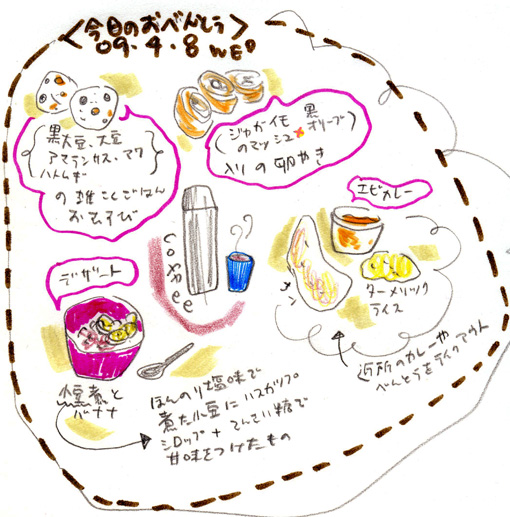 <今日のおべんとう>
09.4.8 WED
黒大豆、大豆
アマランサス、アワ
ハトムギ
の雑こくごはん
おむすび
ジャガイモ 黒
のマッシュ オリーブ
入りの卵やき
エビカレー
coffee
ナン
ターメリック
ライス
近所のカレーや
べんとうをテイクアウト
デザート
小豆煮と
バナナ
ほんのり塩味で
煮た小豆にハスカップ
シロップ+てんさい糖で
甘味をつけたもの